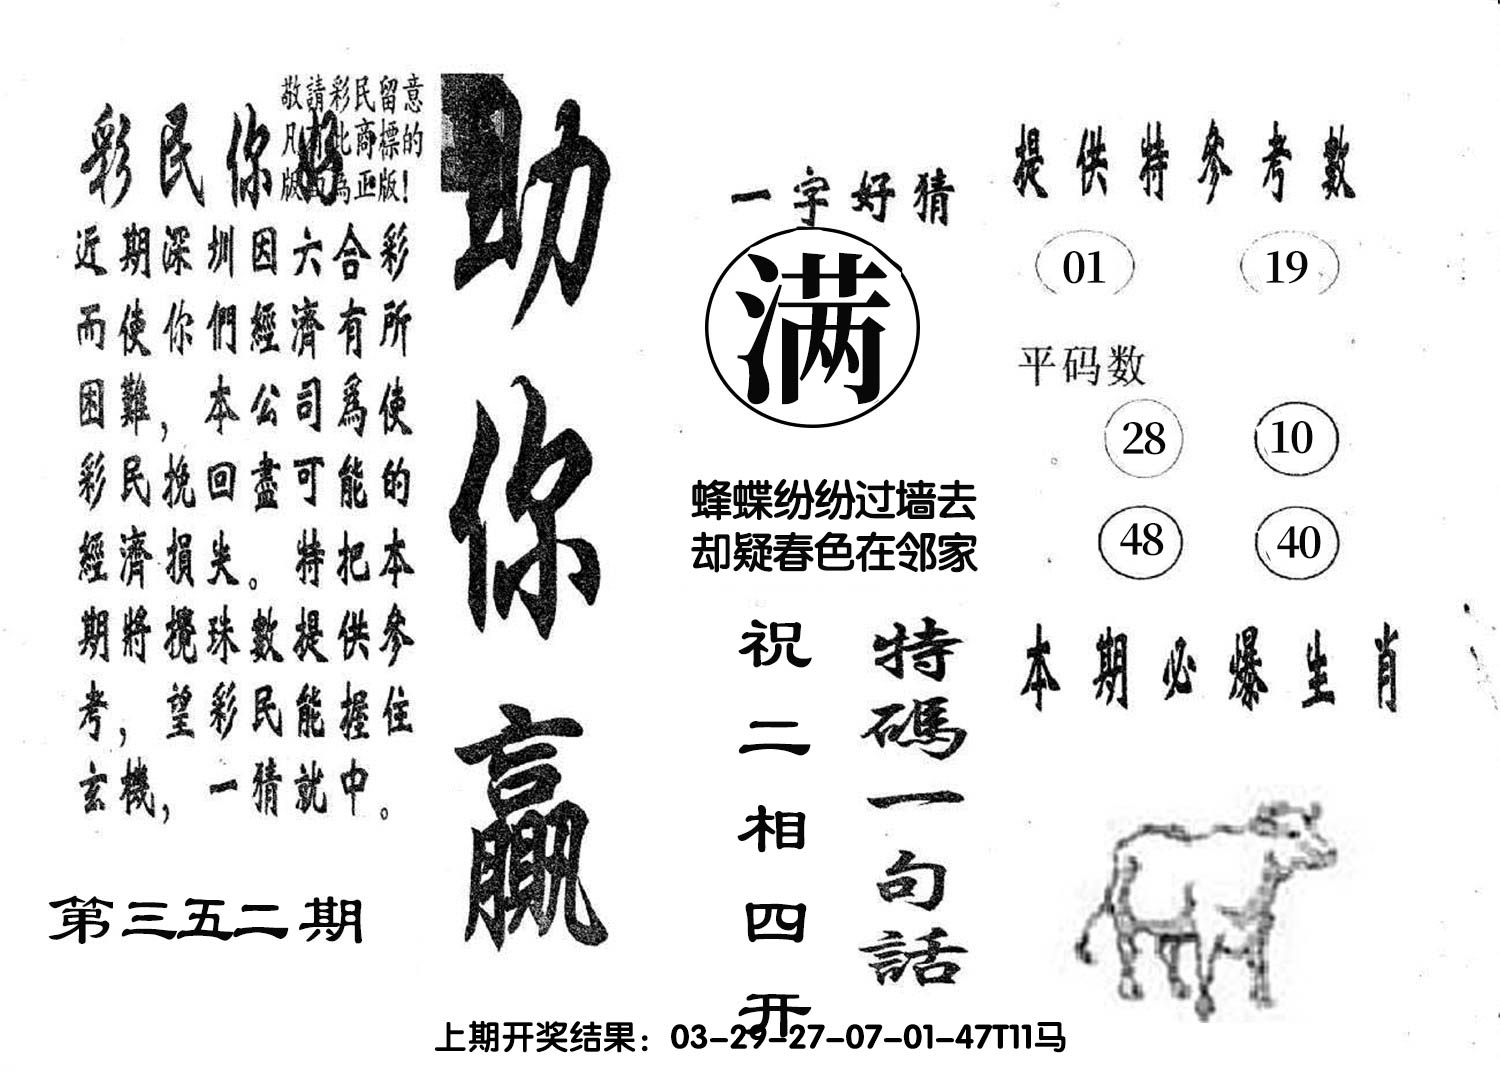 敬請彩民留意
凡有此商標的
版面為正版!
彩民你好
近期深圳因六合彩
而使你們經濟有所
困難，本公司爲使
彩民挽回盡可能的
經濟損失。特把本
期將攪珠數提供參
考，望彩民能握住
玄機，一猜就中。
第三五二期
助你贏
一字好猜
满
蜂蝶纷纷过墙去
却疑春色在邻家
特碼一句話
祝二相四开
提供特參考數
01 19
平码数
28 10
48 40
本期必爆生肖
上期开奖结果：03-29-27-07-01-47T11马